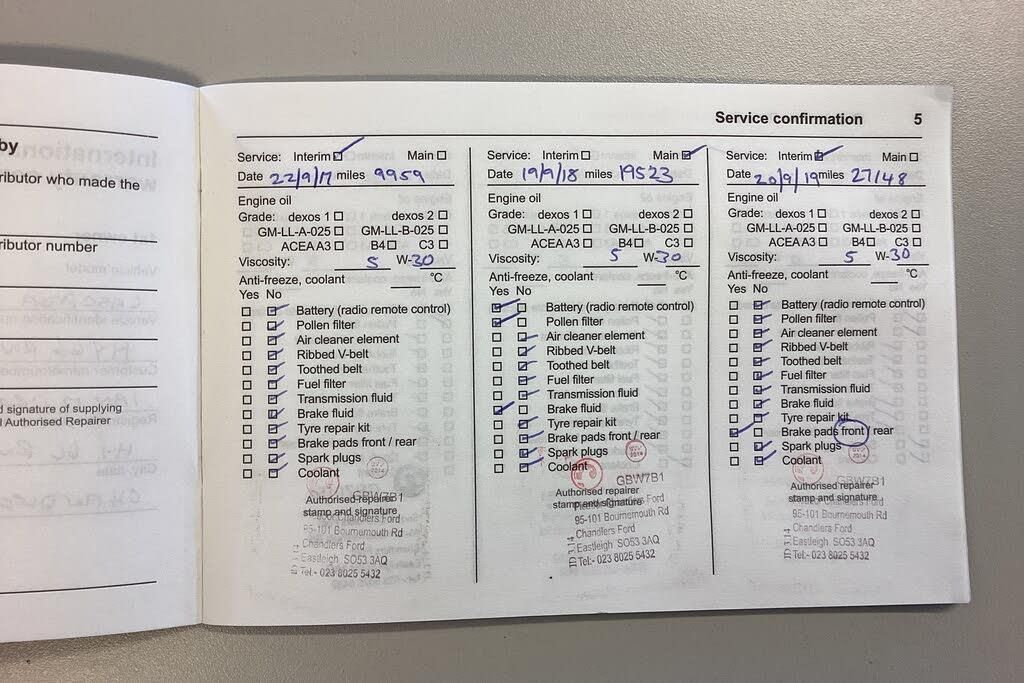 by
ributor who made the
ributor number
d signature of supplying
l Authorised Repairer
Service confirmation 5
Service: Interim Main
Date 22/9/17 miles 9959
Engine oil
Grade: dexos 1 dexos 2
GM-LL-A-025 GM-LL-B-025
ACEA A3 B4 C3
Viscosity: 5 W-30
Anti-freeze, coolant °C
Yes No
Battery (radio remote control)
Pollen filter
Air cleaner element
Ribbed V-belt
Toothed belt
Fuel filter
Transmission fluid
Brake fluid
Tyre repair kit
Brake pads front / rear
Spark plugs
Coolant
GBW7B1
Authorised repairer
stamp and signature
Chandlers Ford
95-101 Bournemouth Rd
Chandlers Ford
Eastleigh SO53 3AQ
Tel:- 023 8025 5432
Service: Interim Main
Date 19/9/18 miles 19523
Engine oil
Grade: dexos 1 dexos 2
GM-LL-A-025 GM-LL-B-025
ACEA A3 B4 C3
Viscosity: 5 W-30
Anti-freeze, coolant °C
Yes No
Battery (radio remote control)
Pollen filter
Air cleaner element
Ribbed V-belt
Toothed belt
Fuel filter
Transmission fluid
Brake fluid
Tyre repair kit
Brake pads front / rear
Spark plugs
Coolant
GBW7B1
Authorised repairer
stamp and signature
95-101 Bournemouth Rd
Chandlers Ford
Eastleigh SO53 3AQ
Tel:- 023 8025 5432
Service: Interim Main
Date 20/9/19 miles 27148
Engine oil
Grade: dexos 1 dexos 2
GM-LL-A-025 GM-LL-B-025
ACEA A3 B4 C3
Viscosity: 5 W-30
Anti-freeze, coolant °C
Yes No
Battery (radio remote control)
Pollen filter
Air cleaner element
Ribbed V-belt
Toothed belt
Fuel filter
Transmission fluid
Brake fluid
Tyre repair kit
Brake pads front / rear
Spark plugs
Coolant
GBW7B1
Authorised repairer
stamp and signature
95-101 Bournemouth Rd
Chandlers Ford
Eastleigh SO53 3AQ
Tel:- 023 8025 5432